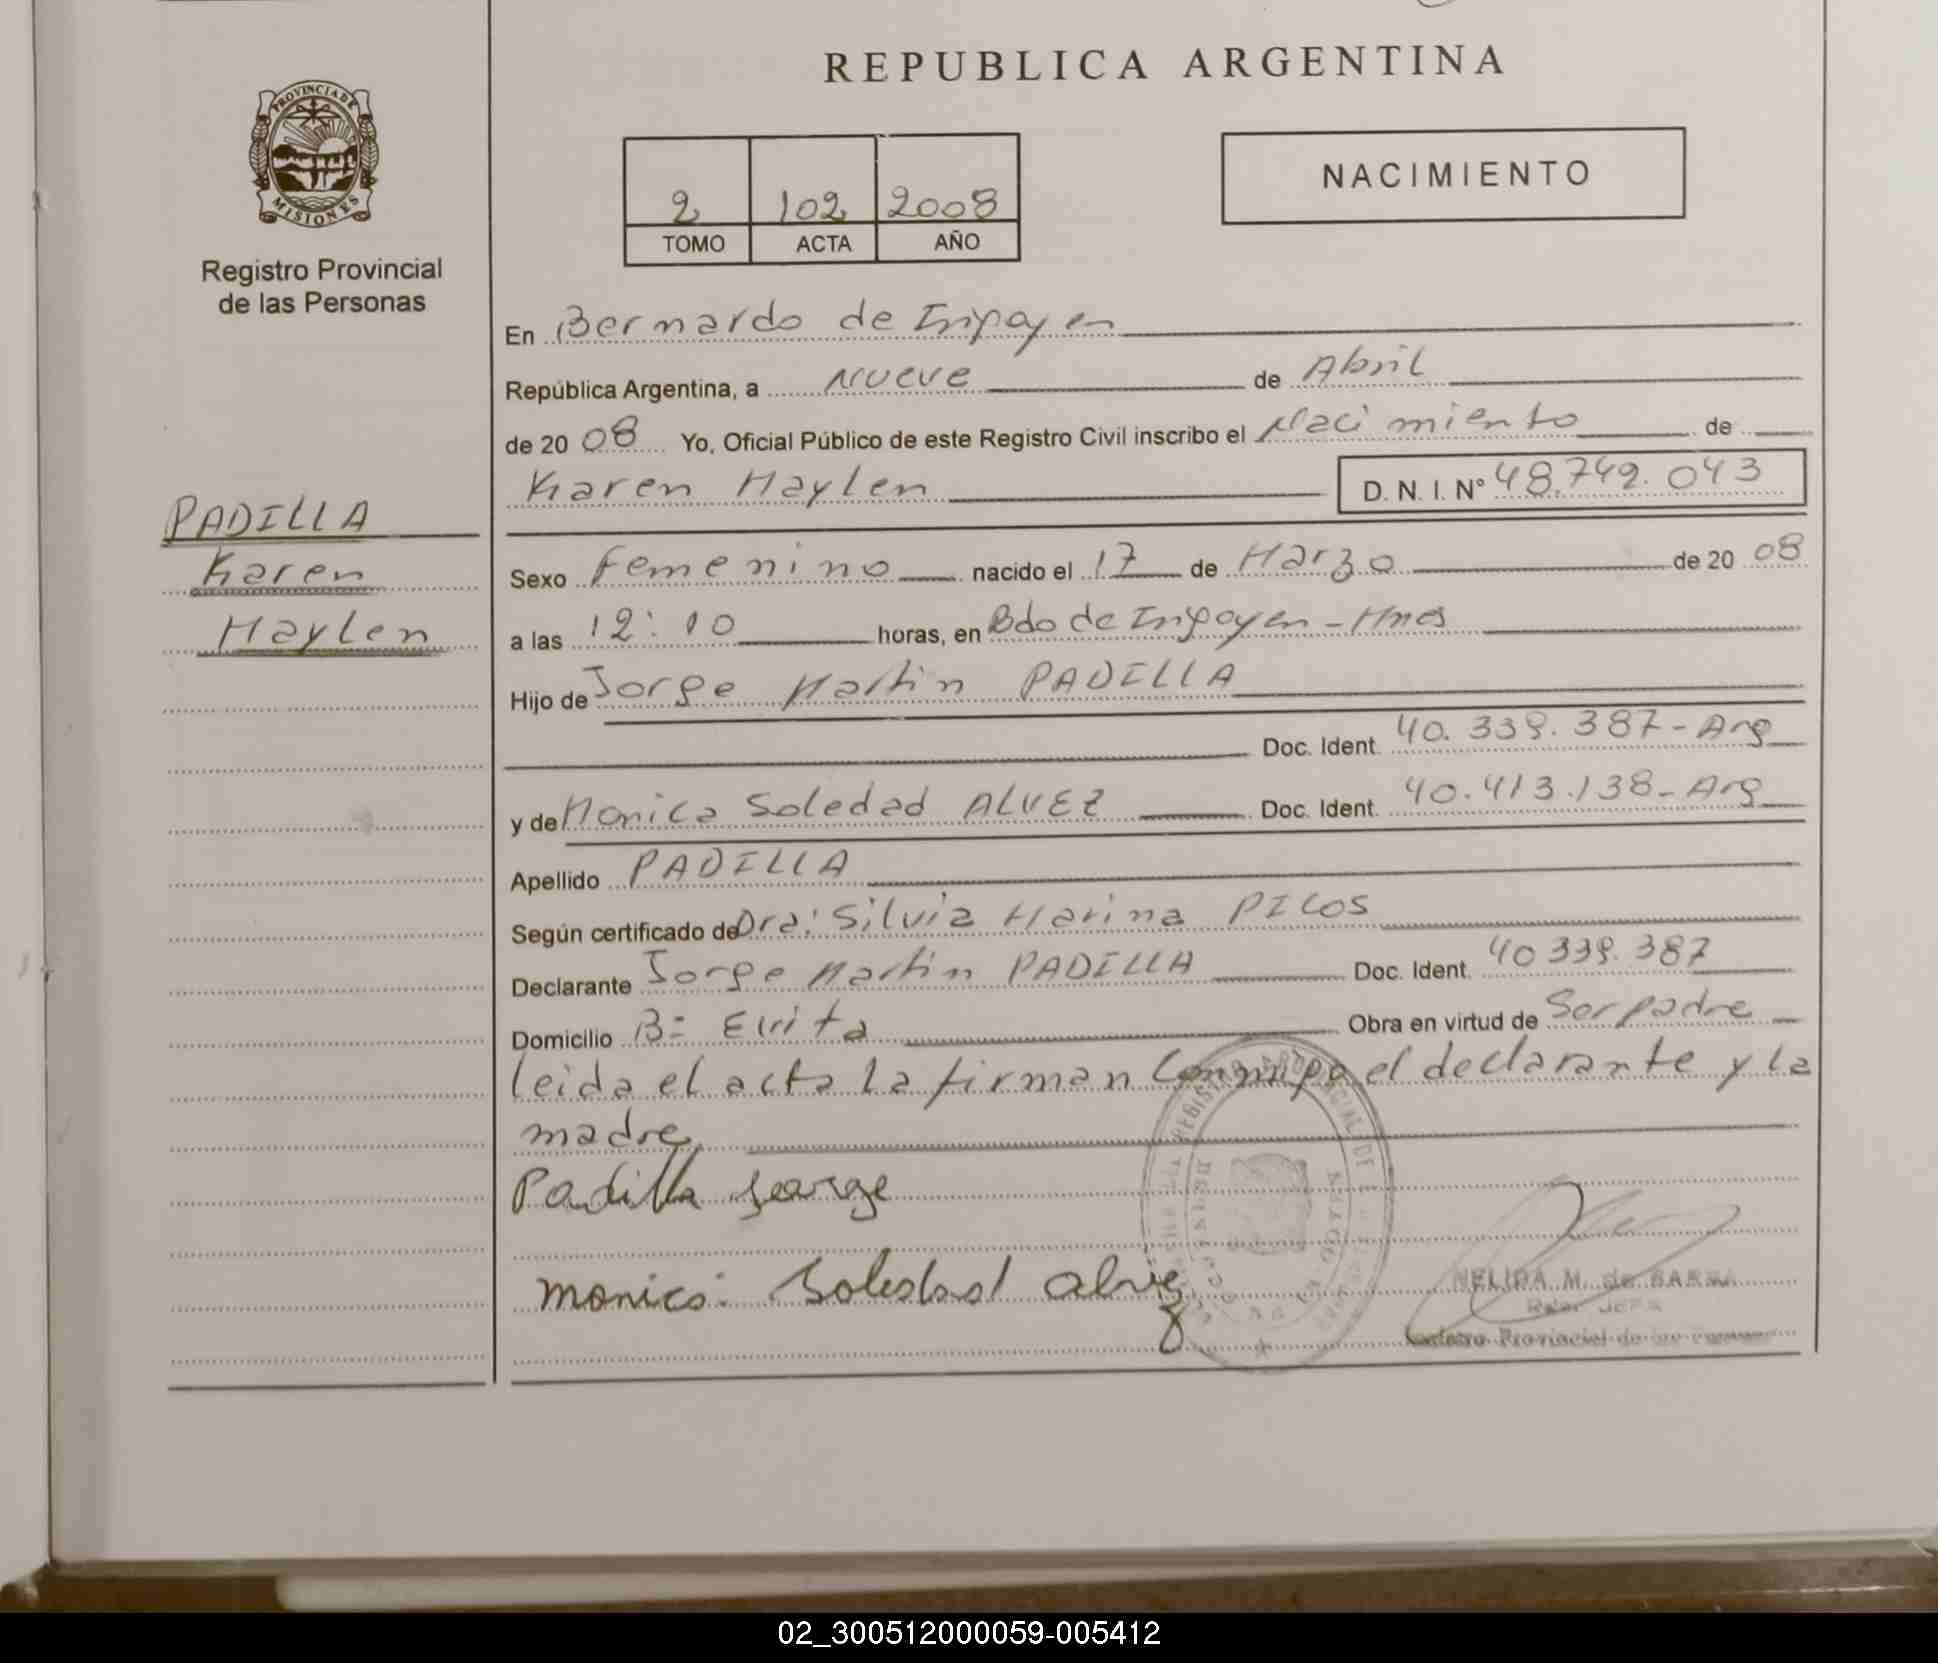 REPUBLICA ARGENTINA
PROVINCIA DE
MISIONES
Registro Provincial
de las Personas
2 102 2008
TOMO ACTA AÑO
NACIMIENTO
En Bernardo de Irigoyen
República Argentina, a Nueve de Abril
de 20 08 Yo, Oficial Público de este Registro Civil inscribo el Nacimiento de
Karen Maylen D. N. I. Nº 48.749.043
PADILLA
Karen
Maylen
Sexo Femenino nacido el 17 de Marzo de 20 08
a las 12:10 horas, en Bdo de Irigoyen - Mnes
Hijo de Jorge Martin PADILLA
Doc. Ident. 40.339.387 - Arg
y de Monica Soledad ALVEZ Doc. Ident. 40.413.138 - Arg
Apellido PADILLA
Según certificado de Dra: Silvia Marina PILOS
Declarante Jorge Martin PADILLA Doc. Ident. 40 339.387
Domicilio Bº Evita Obra en virtud de Ser padre
Leida el acta la firman conmigo el declarante y la
madre
Padilla Jorge
Monica Soledad Alvez
NELIDA M. de
Provincial de las
02_300512000059-005412